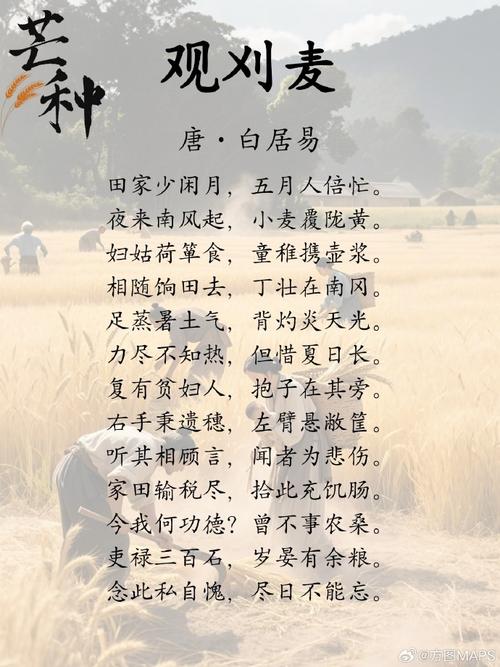 芒种
观刈麦
唐·白居易
田家少闲月，五月人倍忙。
夜来南风起，小麦覆陇黄。
妇姑荷箪食，童稚携壶浆。
相随饷田去，丁壮在南冈。
足蒸暑土气，背灼炎天光。
力尽不知热，但惜夏日长。
复有贫妇人，抱子在其旁。
右手秉遗穗，左臂悬敝筐。
听其相顾言，闻者为悲伤。
家田输税尽，拾此充饥肠。
今我何功德？曾不事农桑。
吏禄三百石，岁晏有余粮。
念此私自愧，尽日不能忘。
@方图MAPS